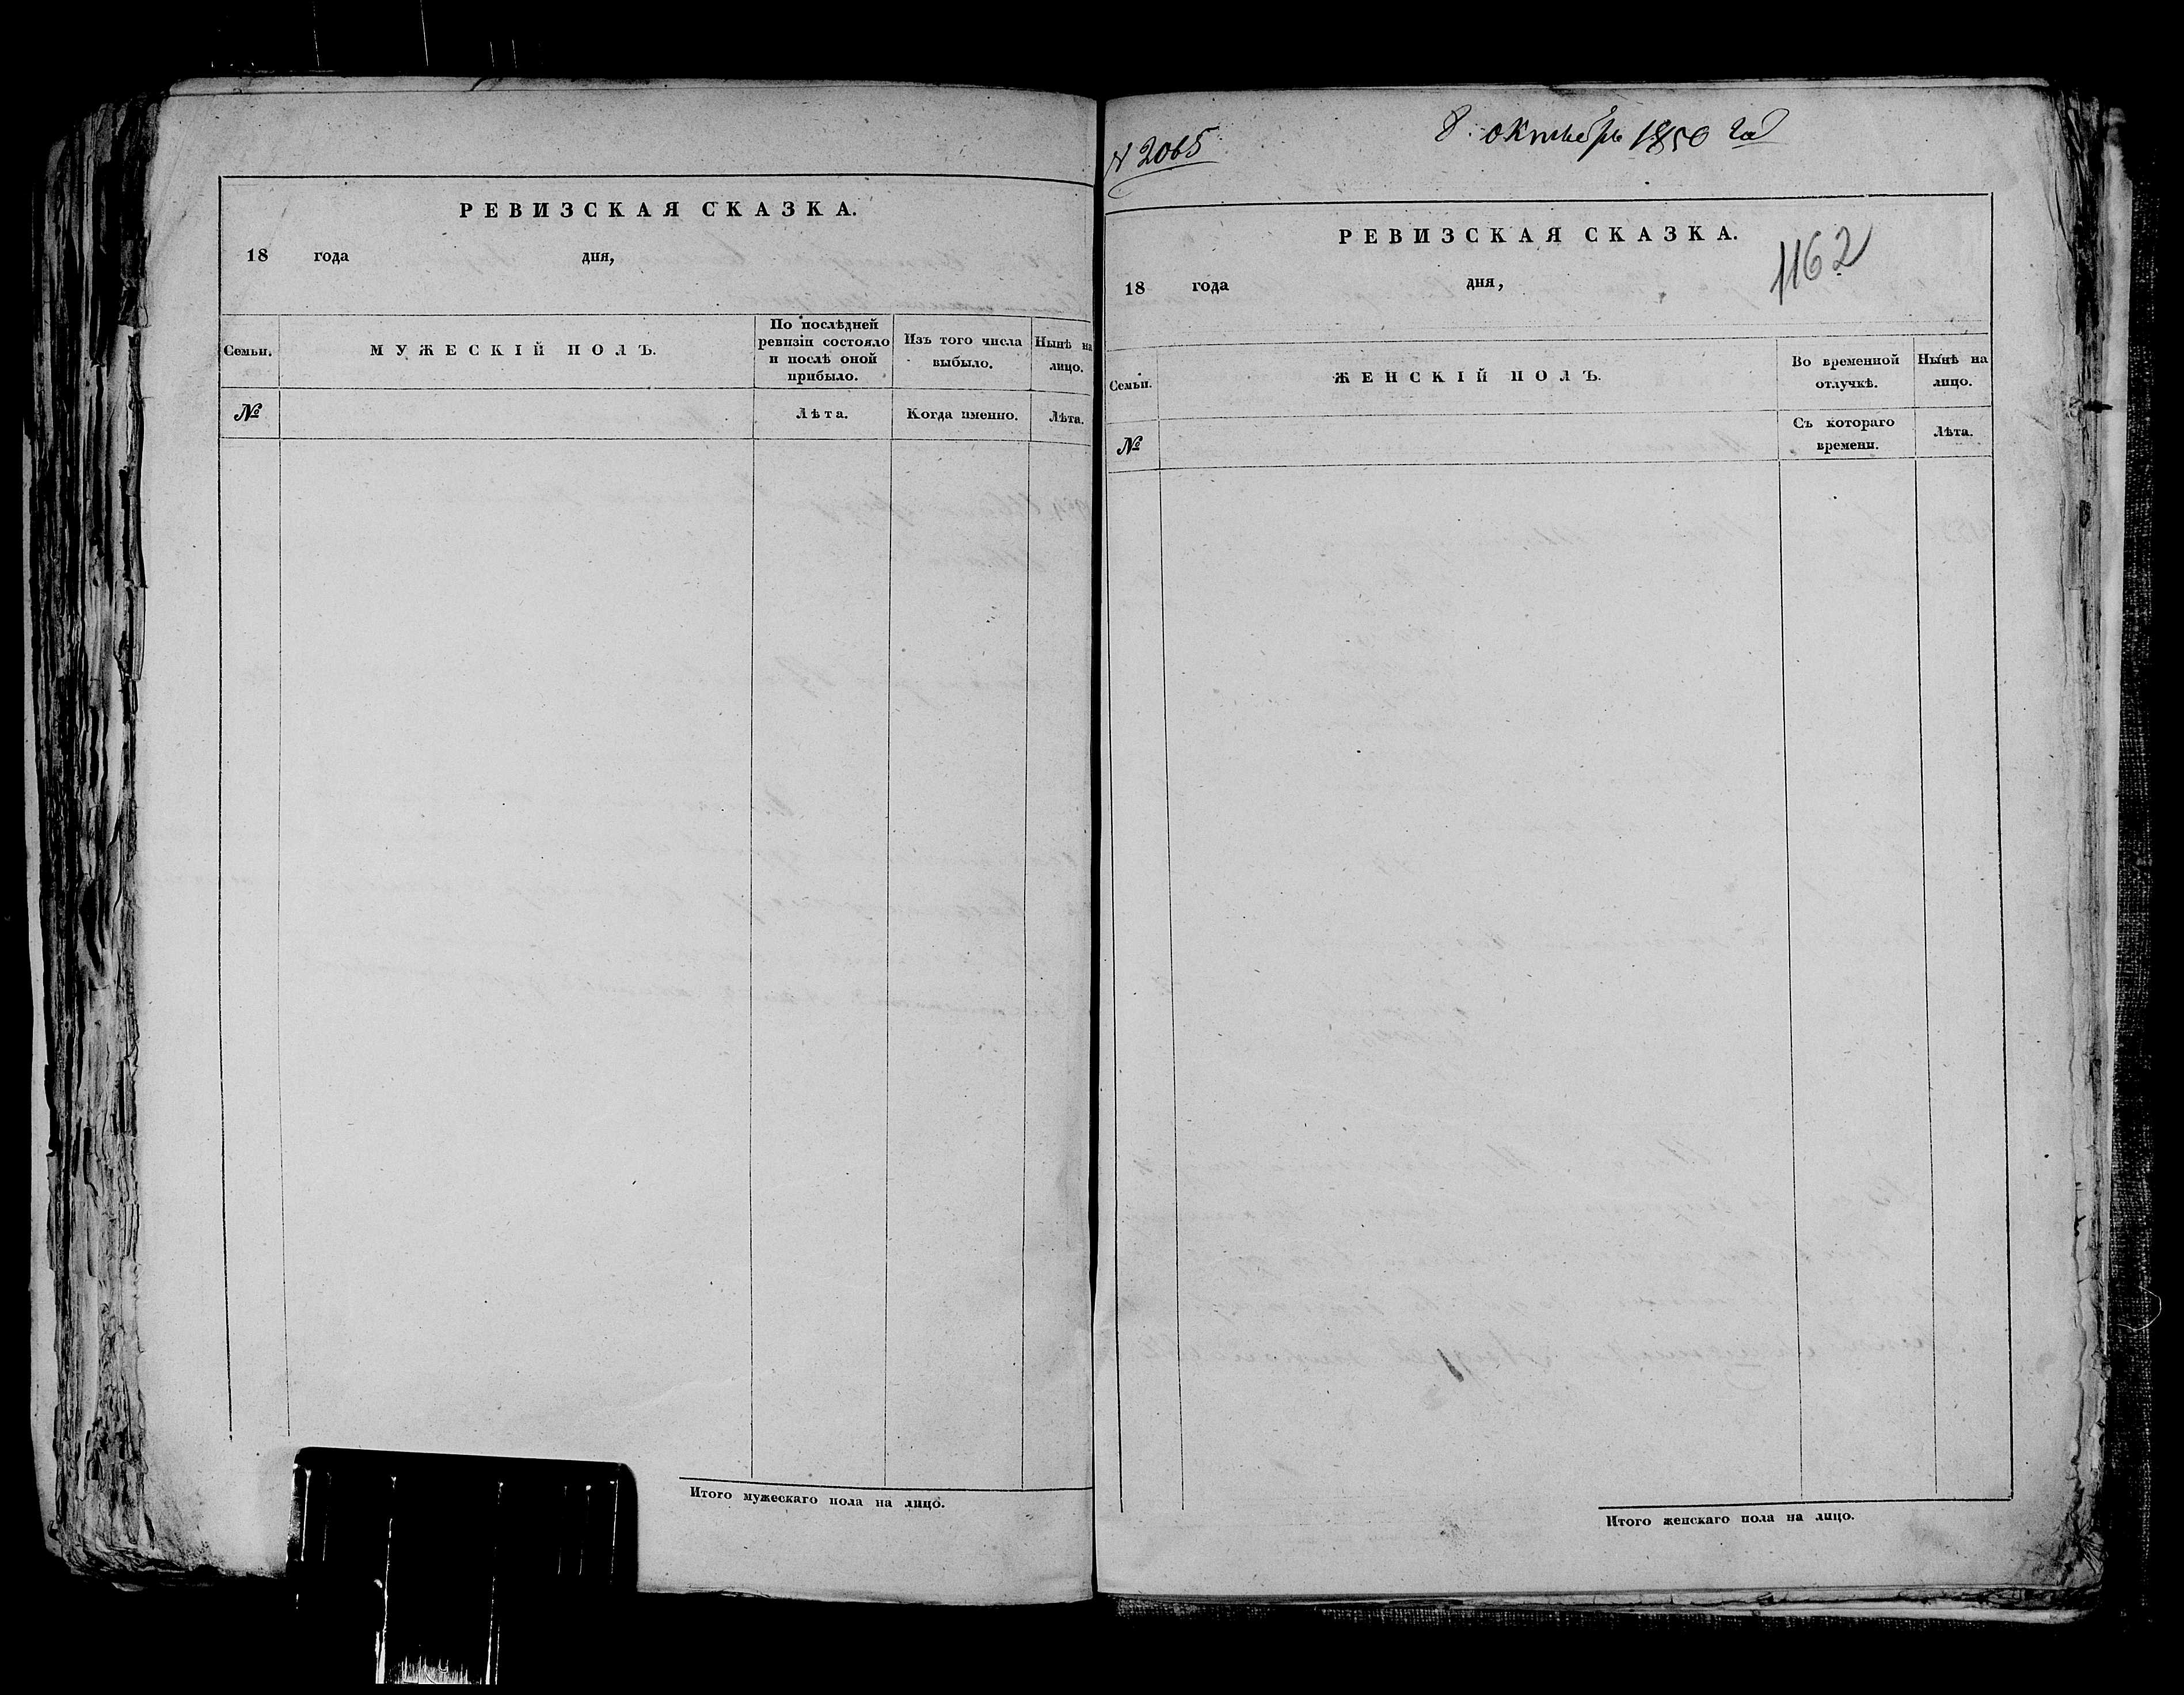 РЕВИЗСКАЯ СКАЗКА.
18 года дня,
Семьи.
МУЖЕСКІЙ ПОЛЪ.
По послѣдней
ревизіи состояло
и послѣ оной
прибыло.
Изъ того числа
выбыло.
Нынѣ на
лицо.
№
Лѣта.
Когда именно.
Лѣта.
Итого мужескаго пола на лицо.
N 2065
8. октябрь 1850 год
РЕВИЗСКАЯ СКАЗКА.
1162
18 года дня,
Семьи.
ЖЕНСКІЙ ПОЛЪ.
Во временной
отлучкѣ.
Нынѣ на
лицо.
№
Съ котораго
времени.
Лѣта.
Итого женскаго пола на лицо.